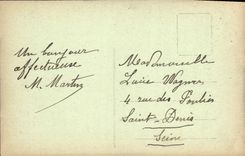 Un bonjour
affectueuse
M. Martin
Mademoiselle
Wagner
4 rue des
Saint-Denis
Seine